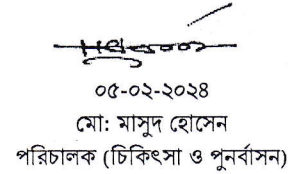 ০৫-০২-২০২৪
মো: মাসুদ হোসেন
পরিচালক (চিকিৎসা ও পুনর্বাসন)